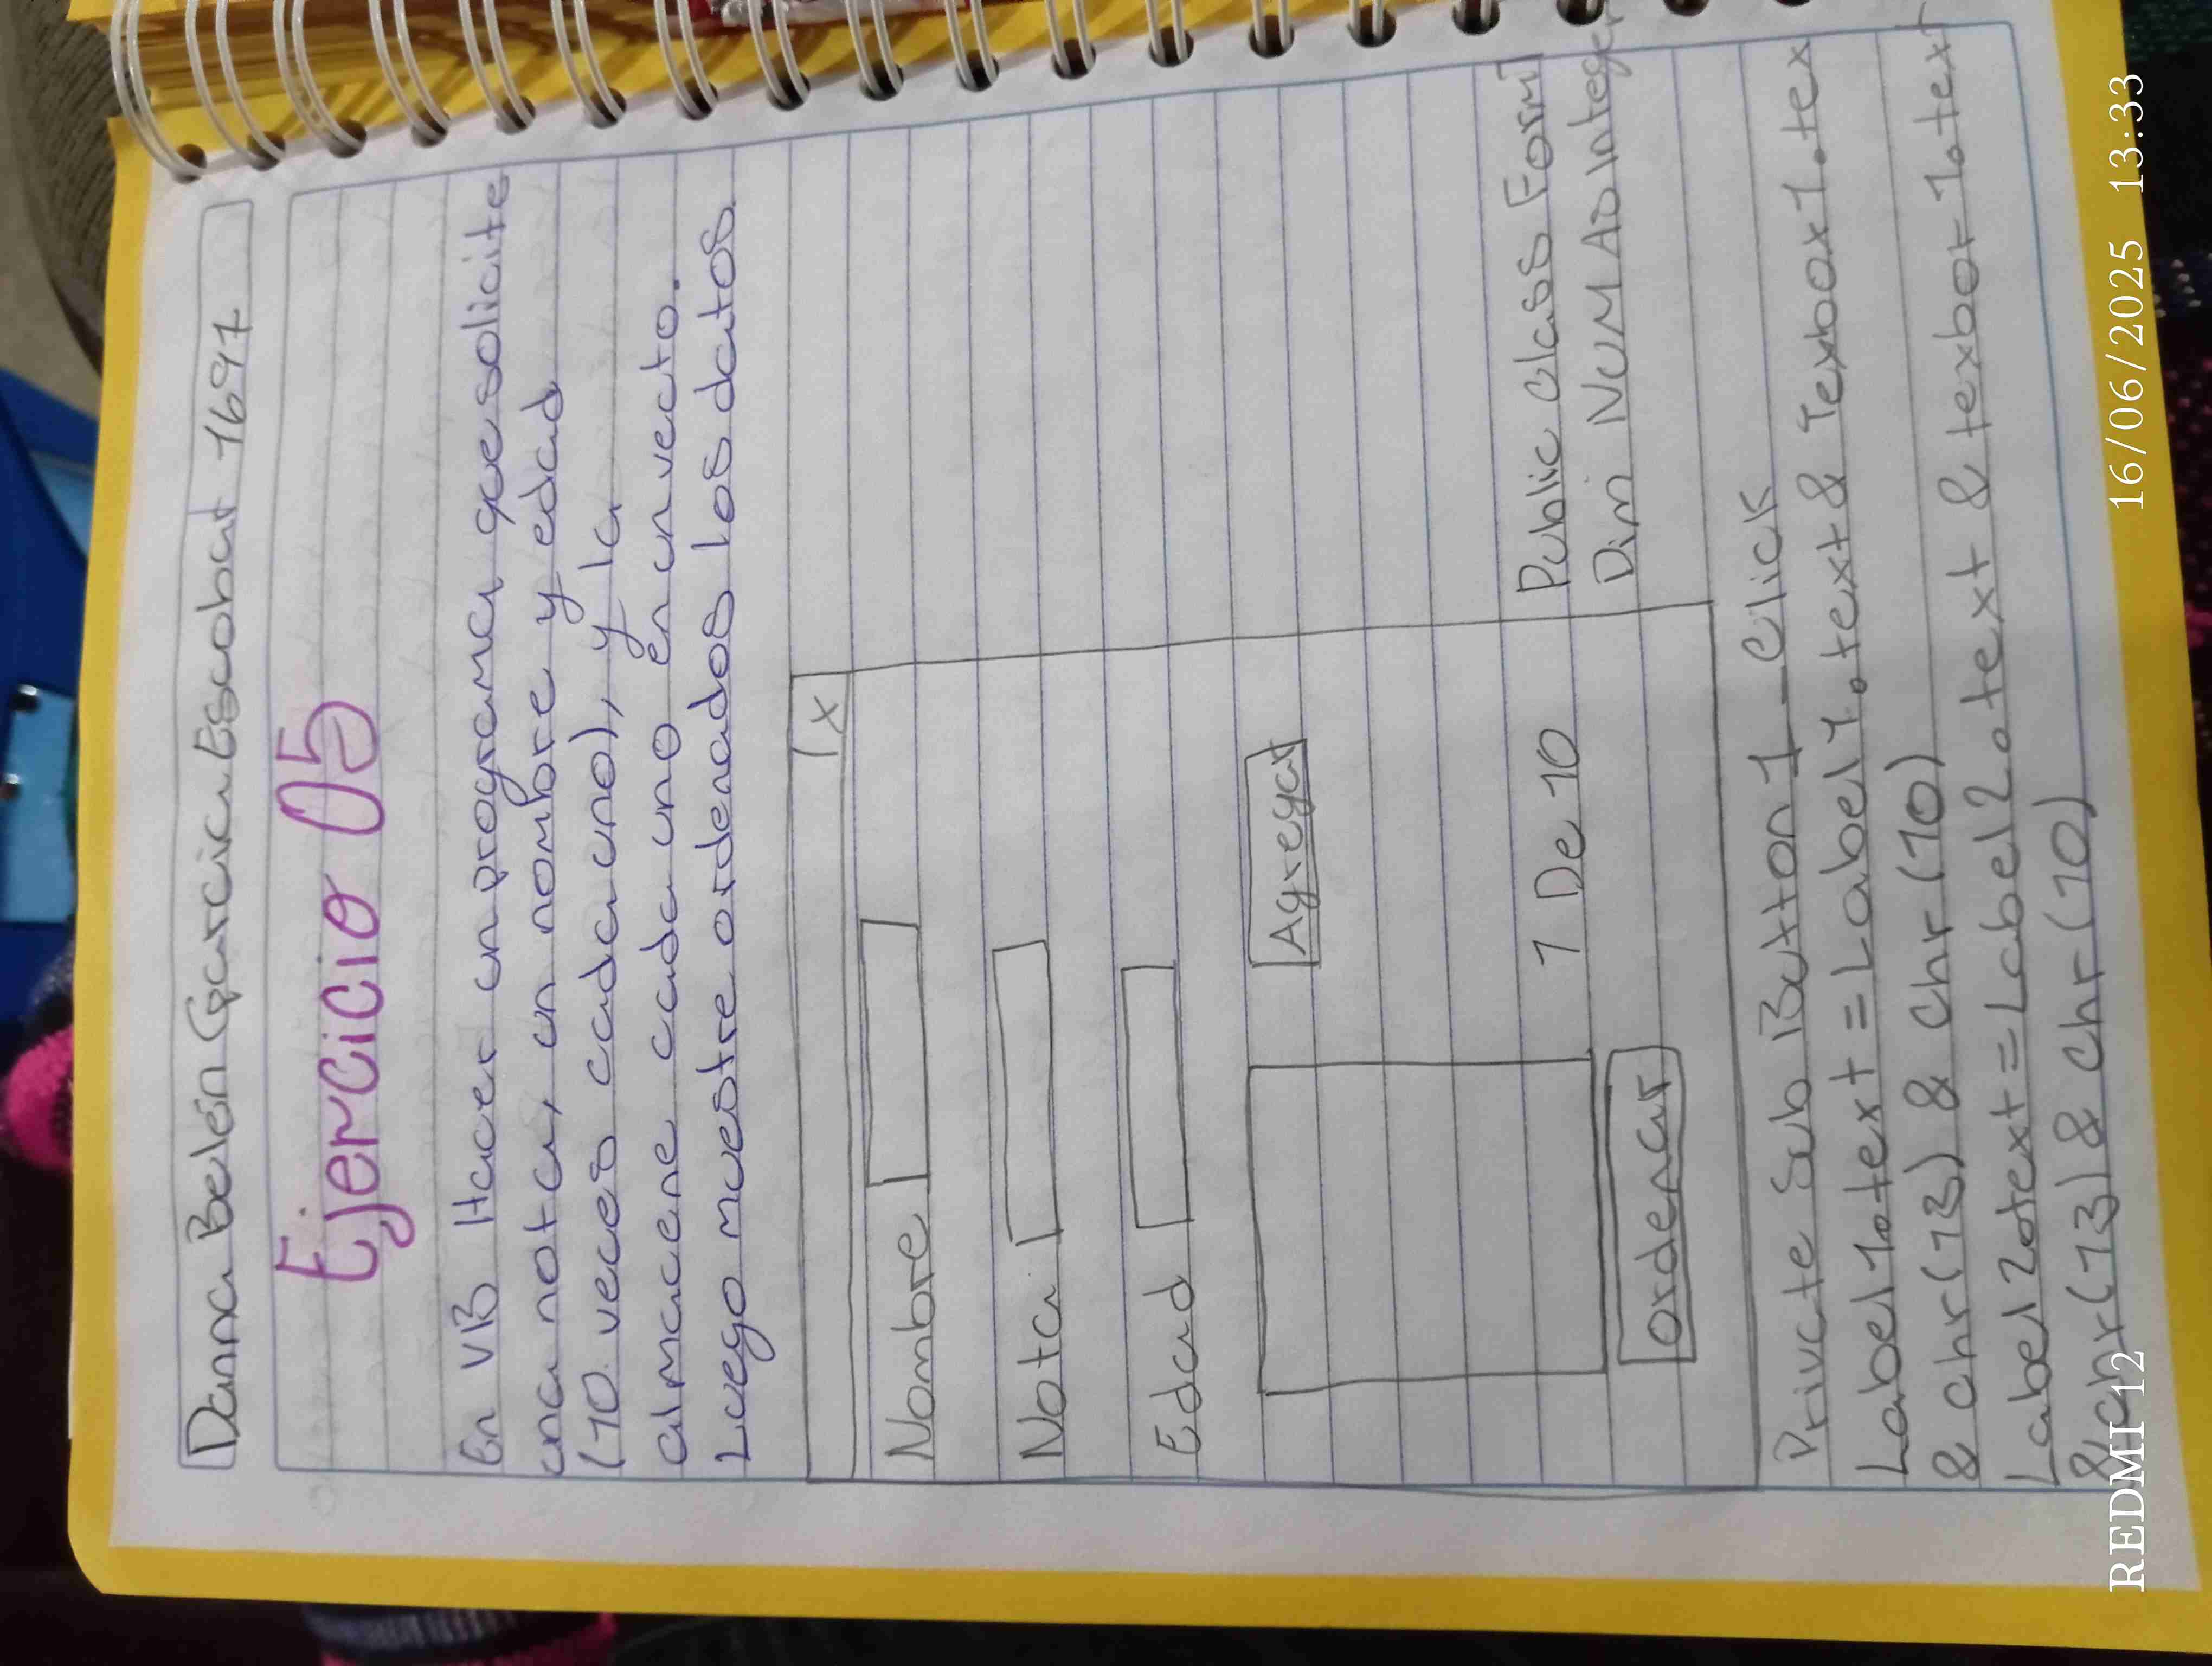 Danna Belén García Escobar 1697
Ejercicio 05
En VB Hacer un programa que solicite
una nota, un nombre y edad
(10 veces cada uno), y la
almacene cada uno en un vecto.
Luego muestre ordenados los datos
x
Nombre
Nota
Edad
Agregar
1 De 10
ordenar
Public Class Form1
Dim NUM As Integer
Private Sub Button1_Click
Label1.text = Label1.text & Texbox1.tex
& chr(13) & Chr(10)
Label2.text = Label2.text & texbor1.text
& chr(13) & chr(10)
REDMI 12
16/06/2025 13:33